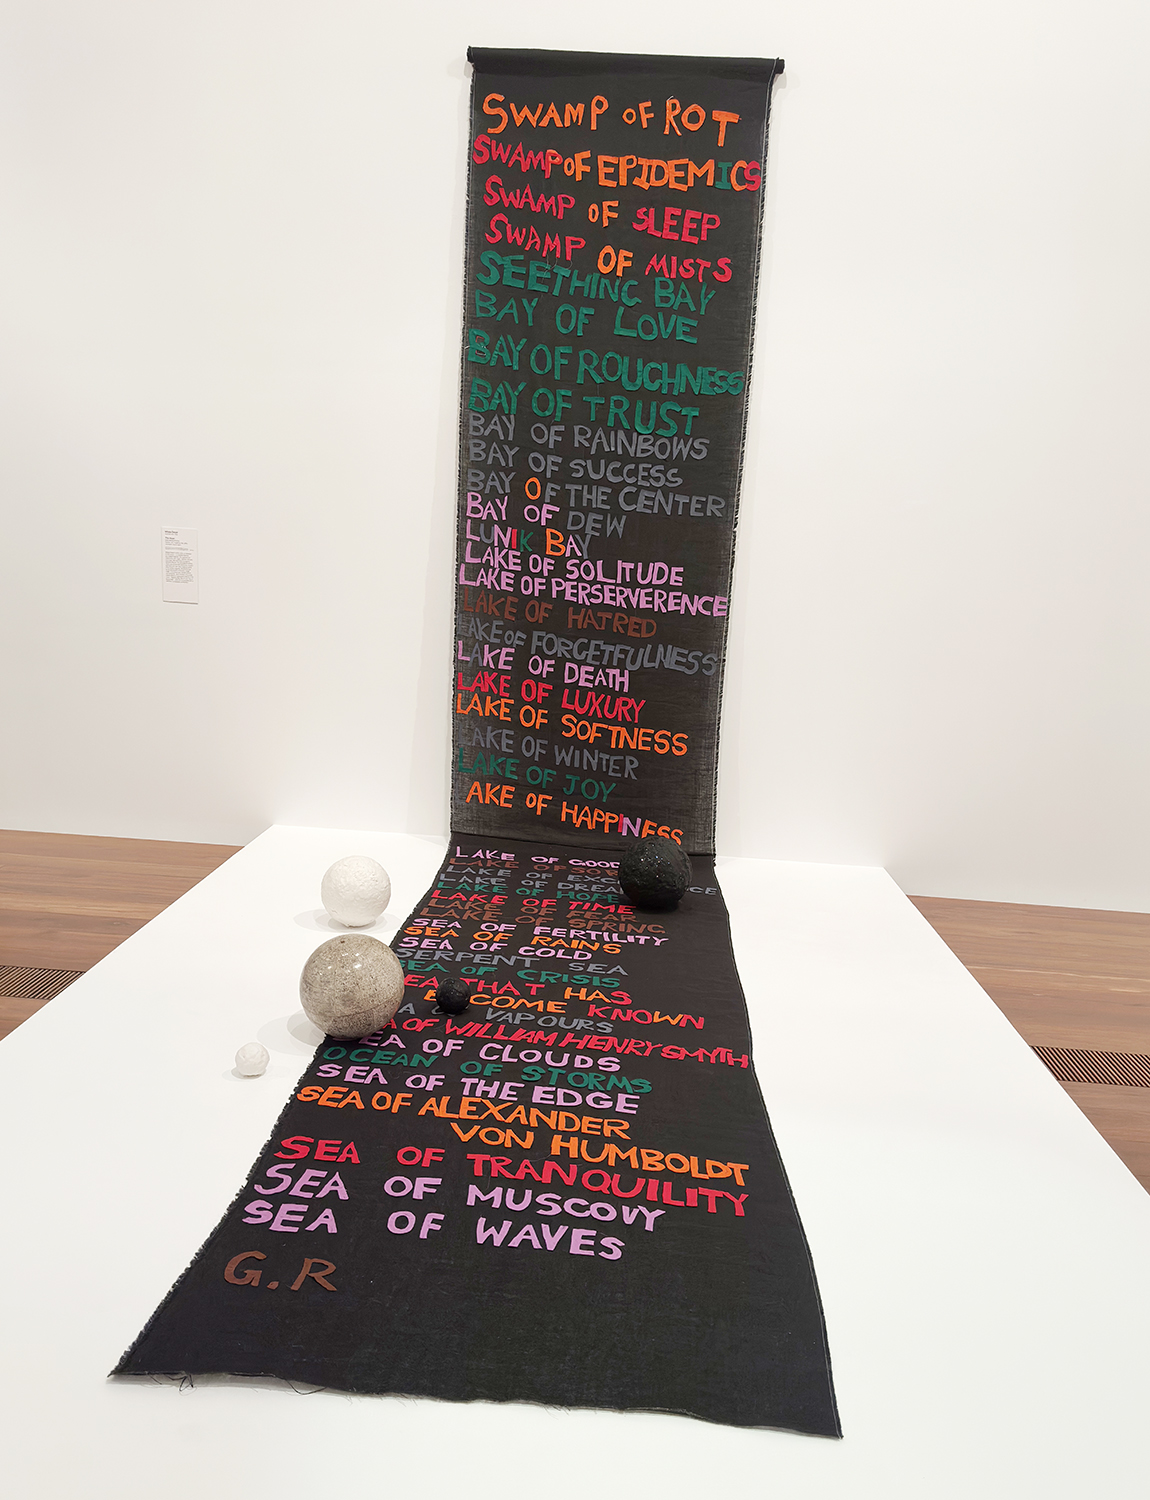 SWAMP OF ROT
SWAMP OF EPIDEMICS
SWAMP OF SLEEP
SWAMP OF MISTS
SEETHING BAY
BAY OF LOVE
BAY OF ROUGHNESS
BAY OF TRUST
BAY OF RAINBOWS
BAY OF SUCCESS
BAY OF THE CENTER
BAY OF DEW
LUNIK BAY
LAKE OF SOLITUDE
LAKE OF PERSERVERENCE
LAKE OF HATRED
LAKE OF FORGETFULNESS
LAKE OF DEATH
LAKE OF LUXURY
LAKE OF SOFTNESS
LAKE OF WINTER
LAKE OF JOY
AKE OF HAPPINESS
LAKE OF
LAKE OF
LAKE OF
LAKE OF HOPE
LAKE OF TIME
LAKE OF FEAR
LAKE OF SPRING
SEA OF FERTILITY
SEA OF RAINS
SEA OF COLD
SERPENT SEA
SEA OF CRISIS
SEA THAT HAS
BECOME KNOWN
VAPOURS
OF WILLIAM HENRY SMYTH
SEA OF CLOUDS
OCEAN OF STORMS
SEA OF THE EDGE
SEA OF ALEXANDER
VON HUMBOLDT
SEA OF TRANQUILITY
SEA OF MUSCOVY
SEA OF WAVES
G.R